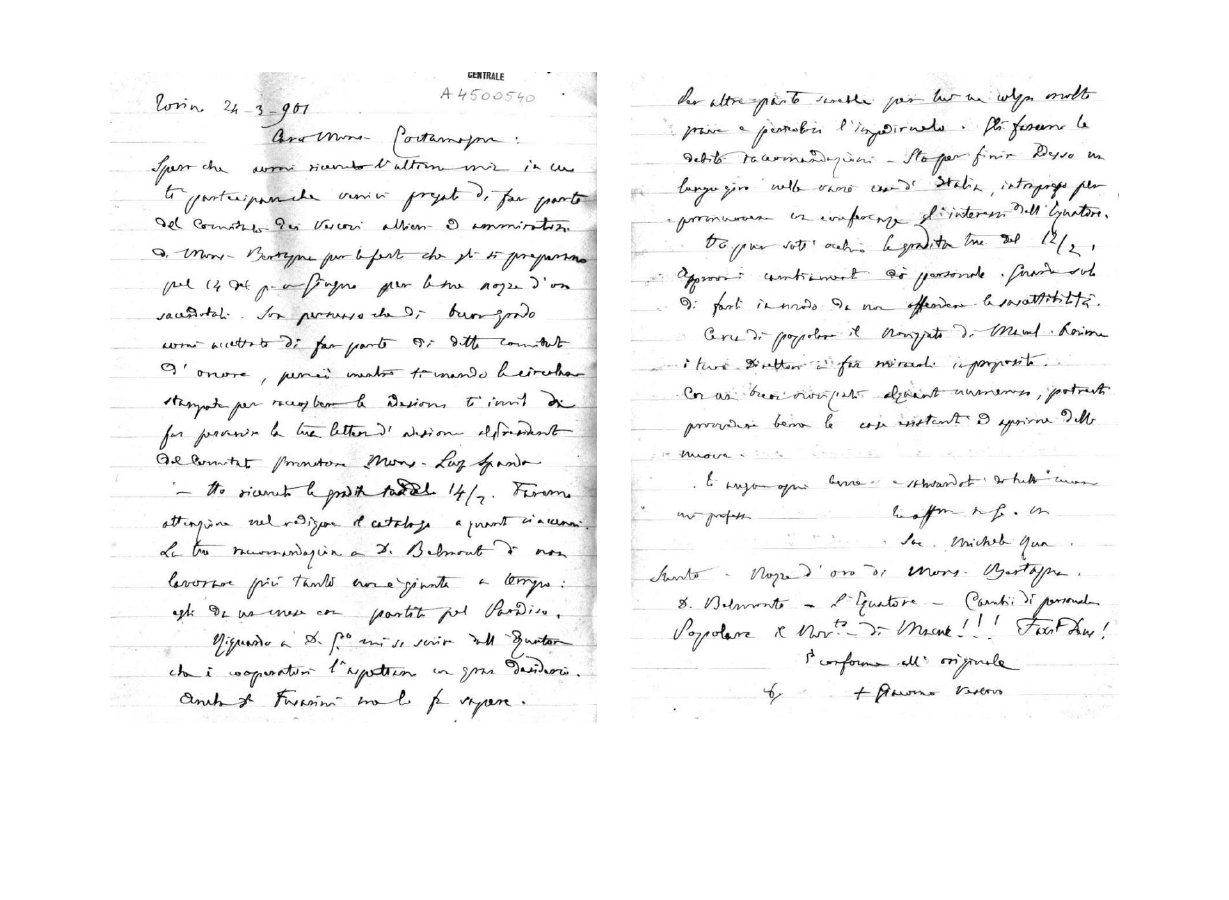 CENTRALE
A4500540
Torino 24-3-901
Caro Mons. Costamagna:
Spero che avrai ricevuto l'altra mia in cui
ti partecipava che venivi pregato di far parte
del Comitato dei Vescovi allievi ed ammiratori
di Mons. Bertagna per le feste che gli si preparano
pel 14 del p. giugno per le sue nozze d'oro
sacerdotali. Son persuaso che di buon grado
avrai accettato di far parte di detto comitato
d'onore, perciò mentre ti mando la circolare
stampata per raccogliere le adesioni t'invito di
far pervenire la tua lettera d'adesione al presidente
del Comitato promotore Mons. Luigi Spandre
- Ho ricevuto la gradita tua del 14/2. Faremo
attenzione nel redigere il catalogo a quanto ci accenni.
La tua raccomandazione a D. Belmonte di non
lavorare più tanto non è giunta a tempo:
egli da un mese era partito pel Paradiso.
Riguardo a D. mi si scrive dall'Equatore
che i cooperatori l'aspettano con gran desiderio.
Anche D. Fusarini me lo fa sapere.
Per altra parte sarebbe per lui una colpa molto
grave e pericolosa l'impedirvelo. Gli faremo le
debite raccomandazioni - Sto per finire adesso un
lungo giro nelle varie case d'Italia, intrapreso per
promuovere con conferenze gl'interessi dell'Equatore.
Ho pur sott'occhio la gradita tua del 12/2,
Approvo i cambiamenti di personale. Guarda solo
di farli in modo da non offendere la suscettibilità.
Cerca di popolare il Noviziato di Macul.
i tuoi Direttori a far miracoli in proposito.
Con un buon noviziato alquanto numeroso, potresti
provvedere bene le case esistenti ed aprirne delle
nuove.
Ti auguro ogni bene e salutandoti di tutto cuore
mi professo tuo aff.mo in G. C. M.
Sac. Michele Rua
Sunto - Nozze d'oro di Mons. Bertagna.
D. Belmonte - L'Equatore - Cambi di personale
Popolare il Nov.to di Macul!!! Faxit Deus!
È conforme all'originale
+ Giacomo Vescovo